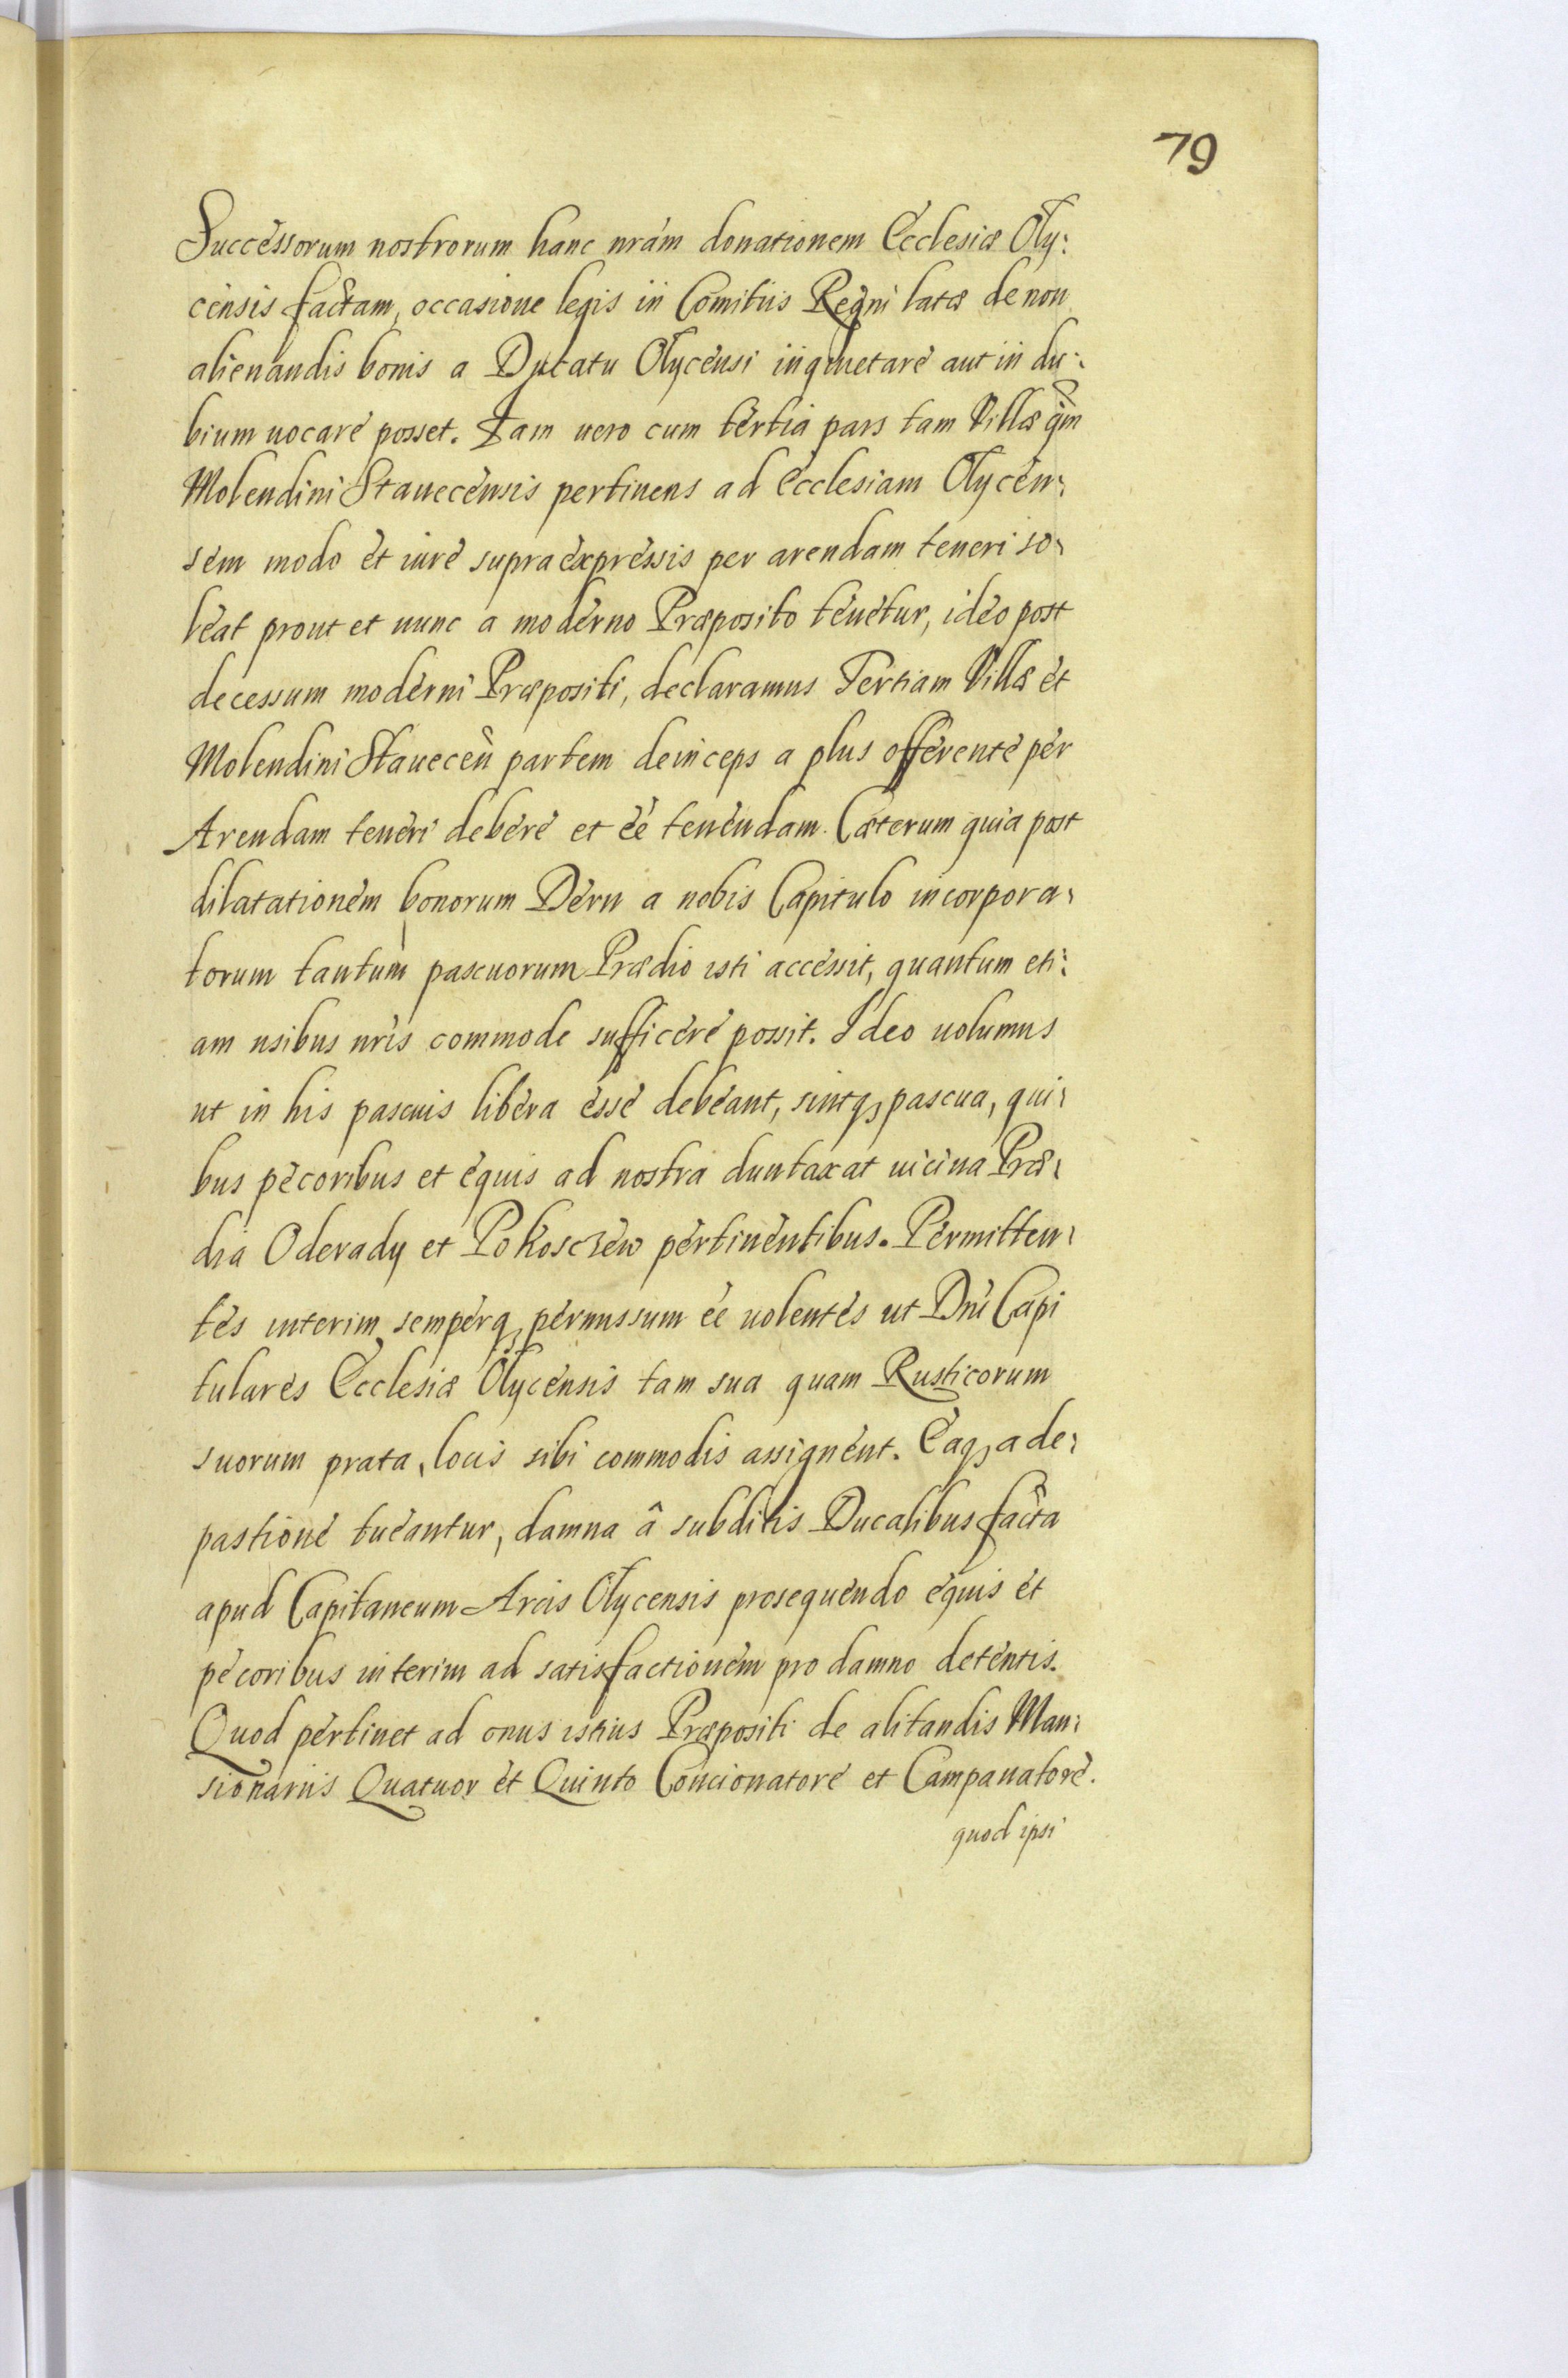 79
Successorum nostrorum hanc nrám donationem Ecclesiæ Oly:
censis factam, occasione legis in Comitiis Regni latæ de non
alienandis bonis a Ducatu Olycensi inquietare aut in du:
bium uocare posset. Iam uero cum tertia pars tam Villæ qm
Molendini Stauecensis pertinens ad Ecclesiam Olycen:
sem modo et iure supra expressis per arendam teneri so:
leat prout et nunc a moderno Præposito tenetur, ideo post
decessum moderni Præpositi, declaramus Tertiam Villæ et
Molendini Stauecen partem deinceps a plus offerente per
Arendam teneri debere et eé tenendam. Cæterum quia post
dilatationem bonorum Dern a nobis Capitulo incorpora:
torum tantum pascuorum Prædio isti accessit, quantum eti:
am usibus nris commode sufficere possit. Ideo uolumus
ut in his pascuis libera esse debeant, sintq, pascua, qui:
bus pecoribus et equis ad nostra duntaxat uicina Præ:
dia Oderady et Pokosczew pertinentibus. Permitten:
tes interim semperq, permissum eé uolentes ut Dni Capi
tulares Ecclesiæ Olycensis tam sua quam Rusticorum
suorum prata, locis sibi commodis assignent. Eaq, a de:
pastione tueantur, damna â subditis Ducalibus facta
apud Capitaneum Arcis Olycensis prosequendo equis et
pecoribus interim ad satisfactionem pro damno detentis.
Quod pertinet ad onus istius Præpositi de alitandis Man:
sionariis Quatuor et Quinto Concionatore et Campanatore.
quod ipsi